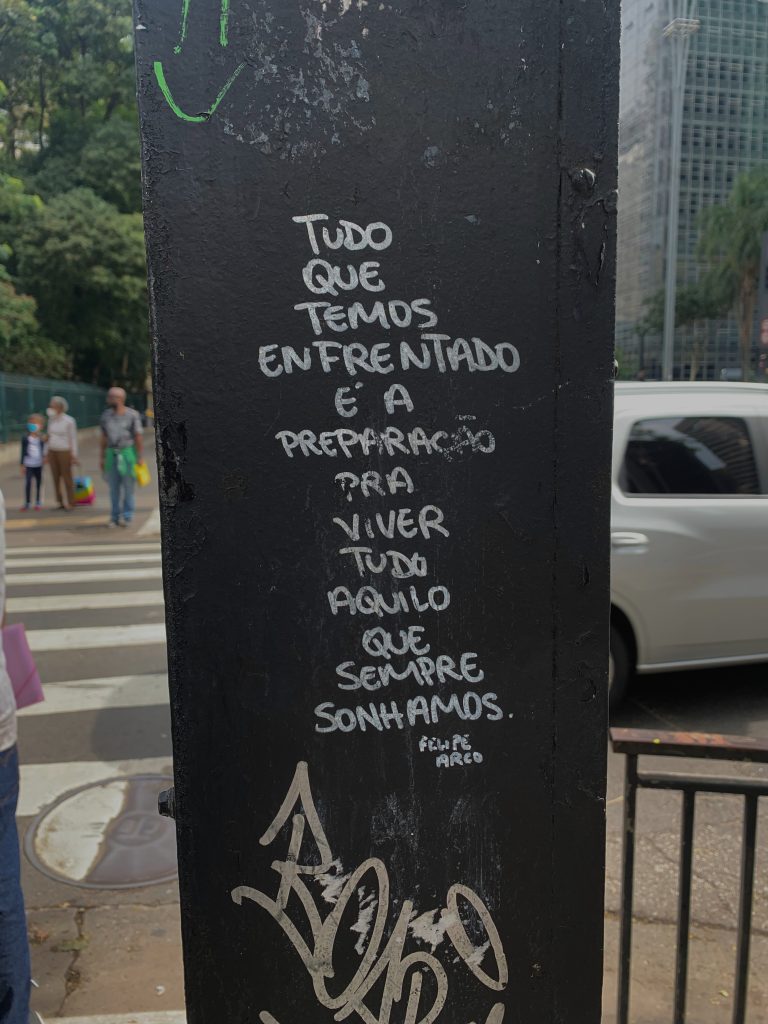 TUDO
QUE
TEMOS
ENFRENTADO
É A
PREPARAÇÃO
PRA
VIVER
TUDO
AQUILO
QUE
SEMPRE
SONHAMOS.
FELIPE
ARCO